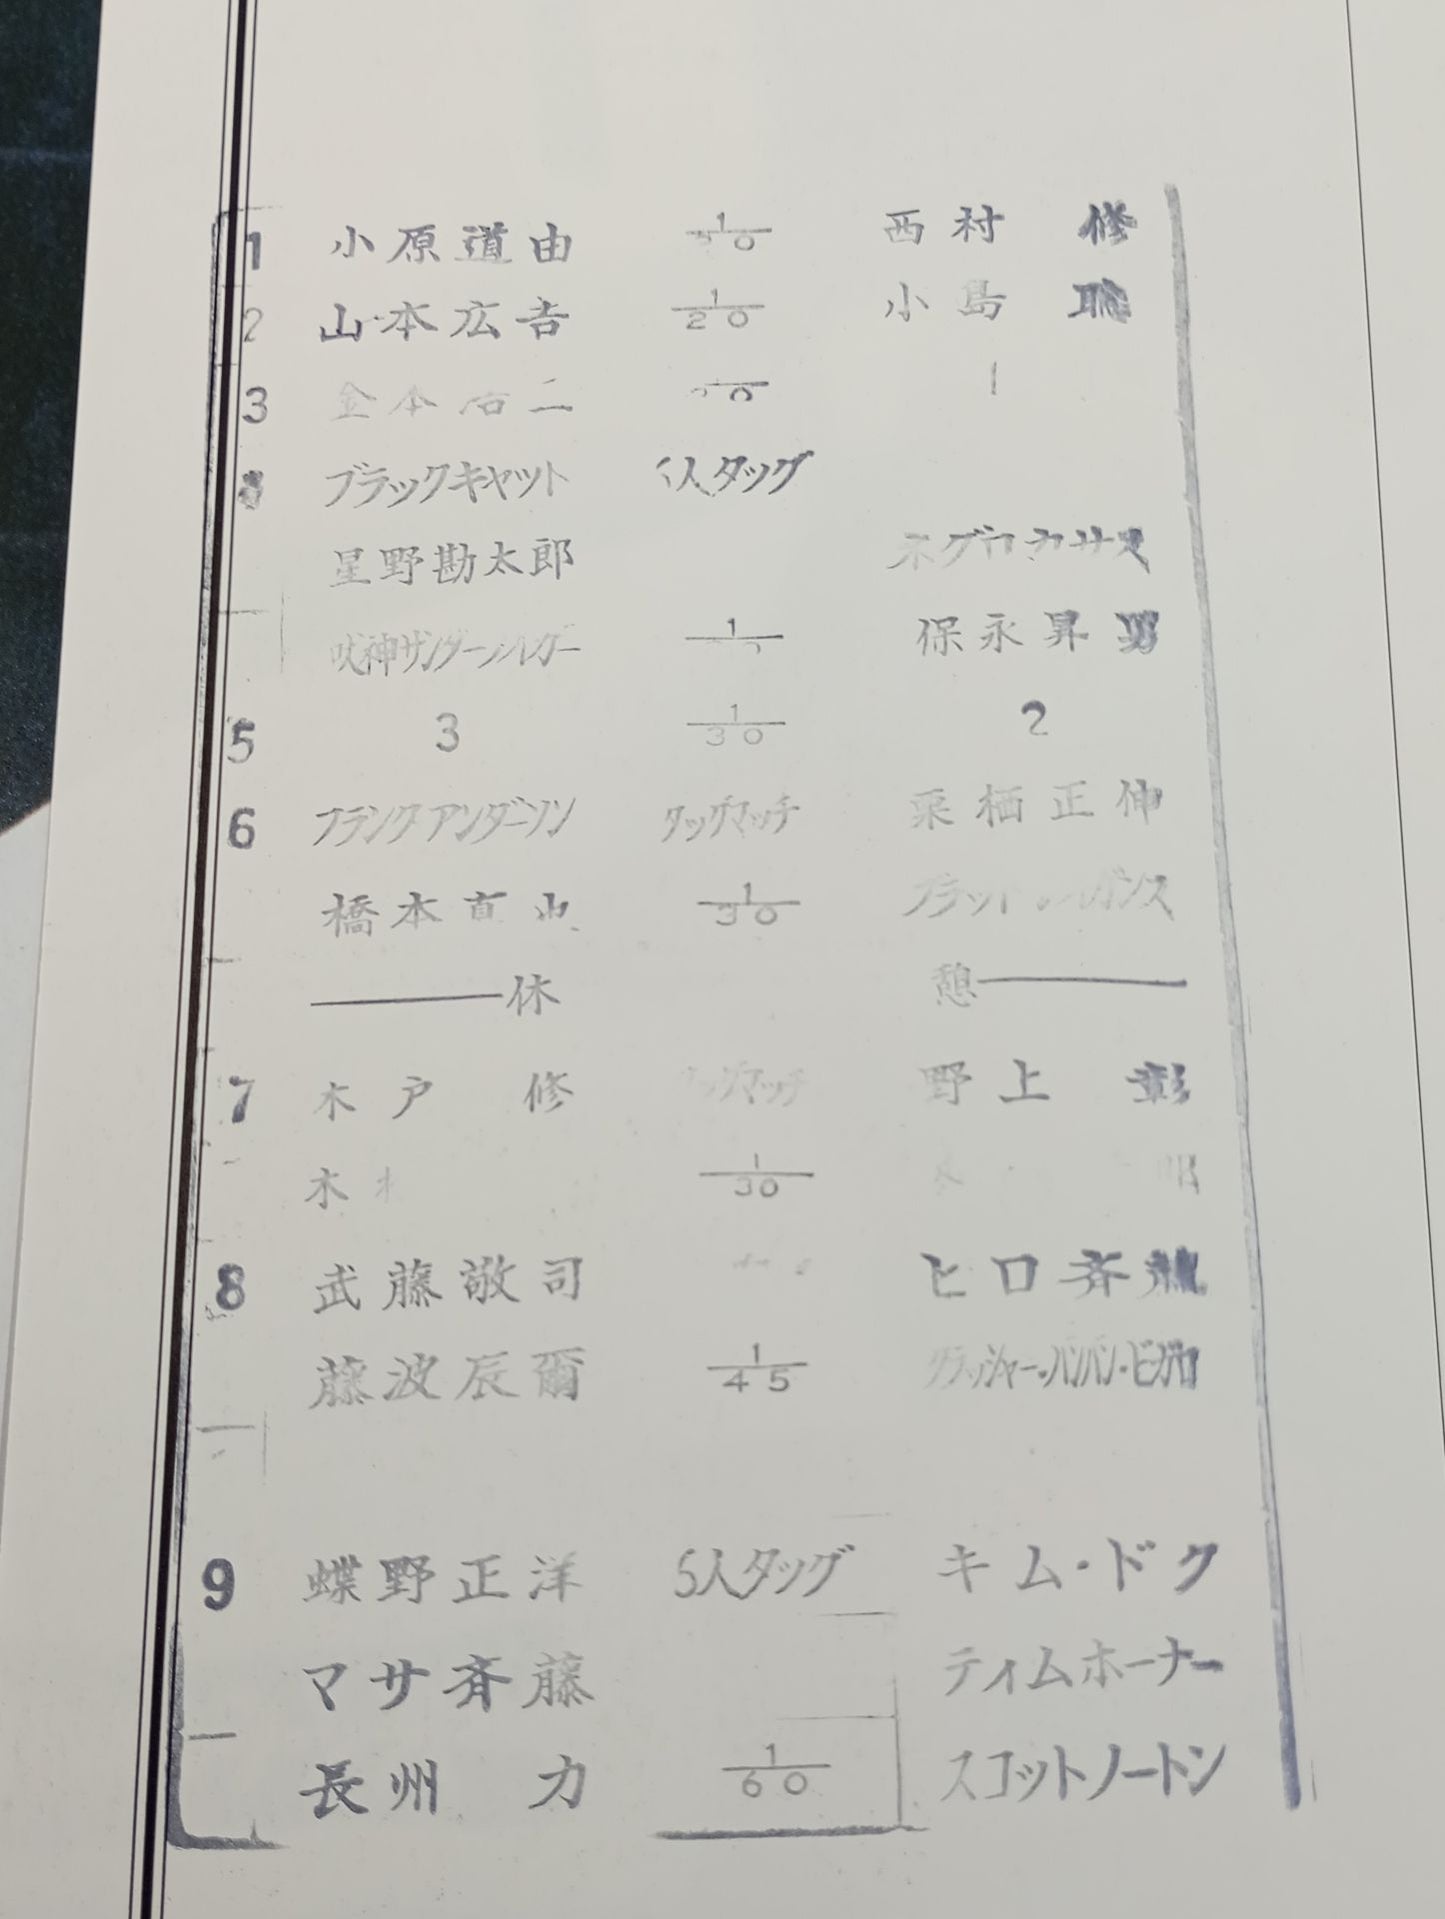 1 小原道由 1/30 西村 修
2 山本広吉 1/20 小島 聡
3 金本浩二 1
ブラックキャット 人タッグ
星野勘太郎 ネグロカサス
獣神サンダーライガー 1 保永昇男
5 3 1/30 2
6 フランクアンダーソン タッグマッチ 栗栖正伸
橋本真也 1/30 ブラッド レイガンス
休 憩
7 木戸 修 タッグマッチ 野上 彰
木村 1/30
8 武藤敬司 ヒロ斉藤
藤波辰爾 1/45 クラッシャー・バンバン・ビガロ
9 蝶野正洋 6人タッグ キム・ドク
マサ斉藤 ティムホーナー
長州 力 1/60 スコットノートン